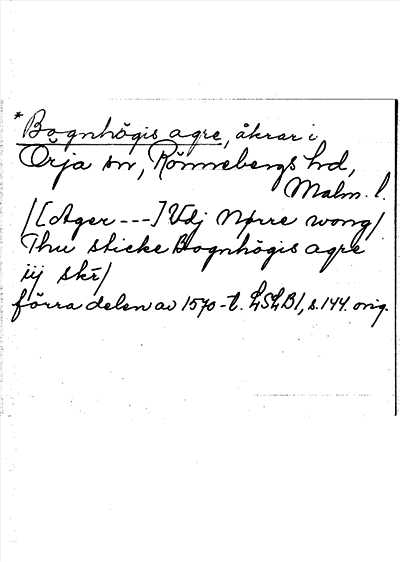 *Bognhögis agre, åkrar i
Örja sn, Rönnebergs hd,
Malm. l.
/[Ager ---] Vdj Nørre wong/
Thu sticke Bognhögis agre
iij skr/
förra delen av 1570-t. LSLB1, s. 144. orig.